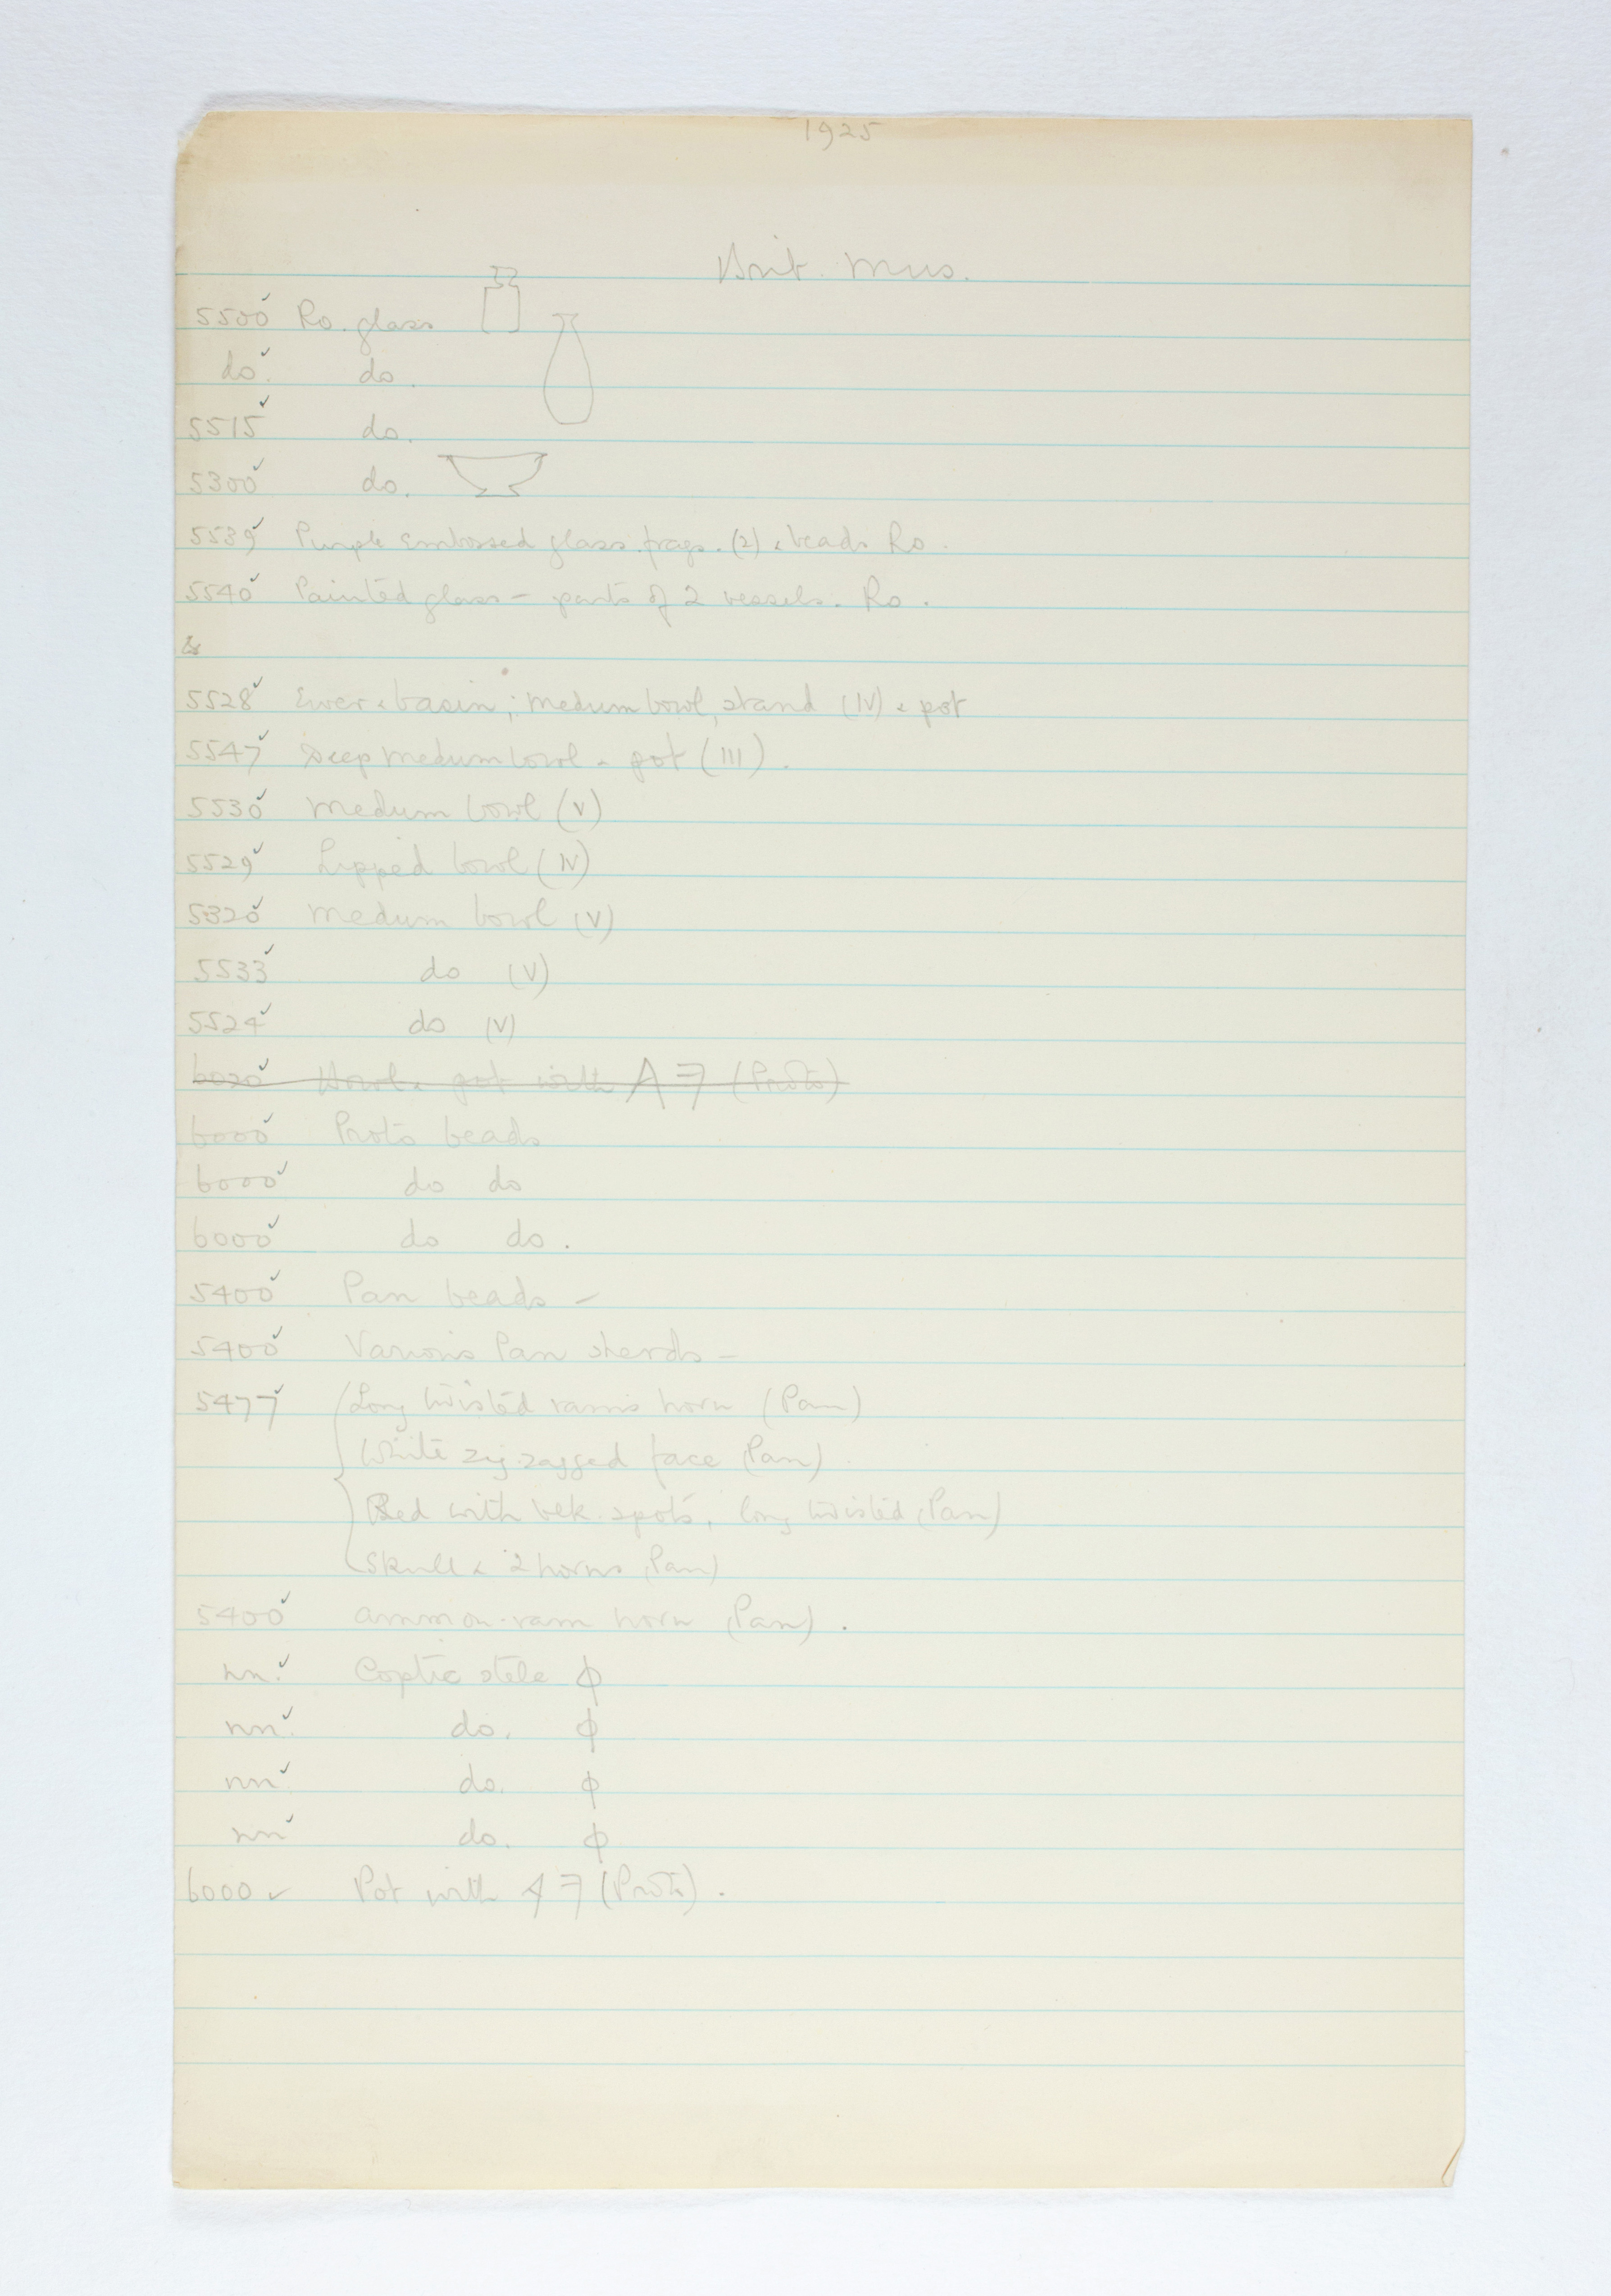 1925
Brit. Mus.
5500 ✓ Ro. glass
do. ✓ do.
5515 ✓ do.
5300 ✓ do.
5539 ✓ Purple embossed glass frags. (2) & beads Ro.
5540 ✓ Painted glass – parts of 2 vessels. Ro.
5528 ✓ Ewer & basin; Medum bowl, stand (IV) & pot
5547 ✓ Deep Medum bowl & pot (III).
5530 ✓ Medum bowl (V)
5529 ✓ Lipped bowl (IV)
5320 ✓ Medum bowl (V)
5533 ✓ do (V)
5524 ✓ do (V)
6020 ✓ Bowl & pot with (Proto)
6000 ✓ Proto beads
6000 ✓ do do
6000 ✓ do do.
5400 ✓ Pan beads –
5400 ✓ Various Pan sherds –
5477 ✓ Long twisted rams horn (Pan)
White zig-zagged face (Pan)
Red with blk. spots, long twisted (Pan)
Skull & 2 horns (Pan)
5400 ✓ ammon-ram horn (Pan).
nn. ✓ Coptic stele ϕ
nn. ✓ do. ϕ
nn ✓ do. ϕ
nn ✓ do. ϕ
6000 ✓ Pot with (Proto).